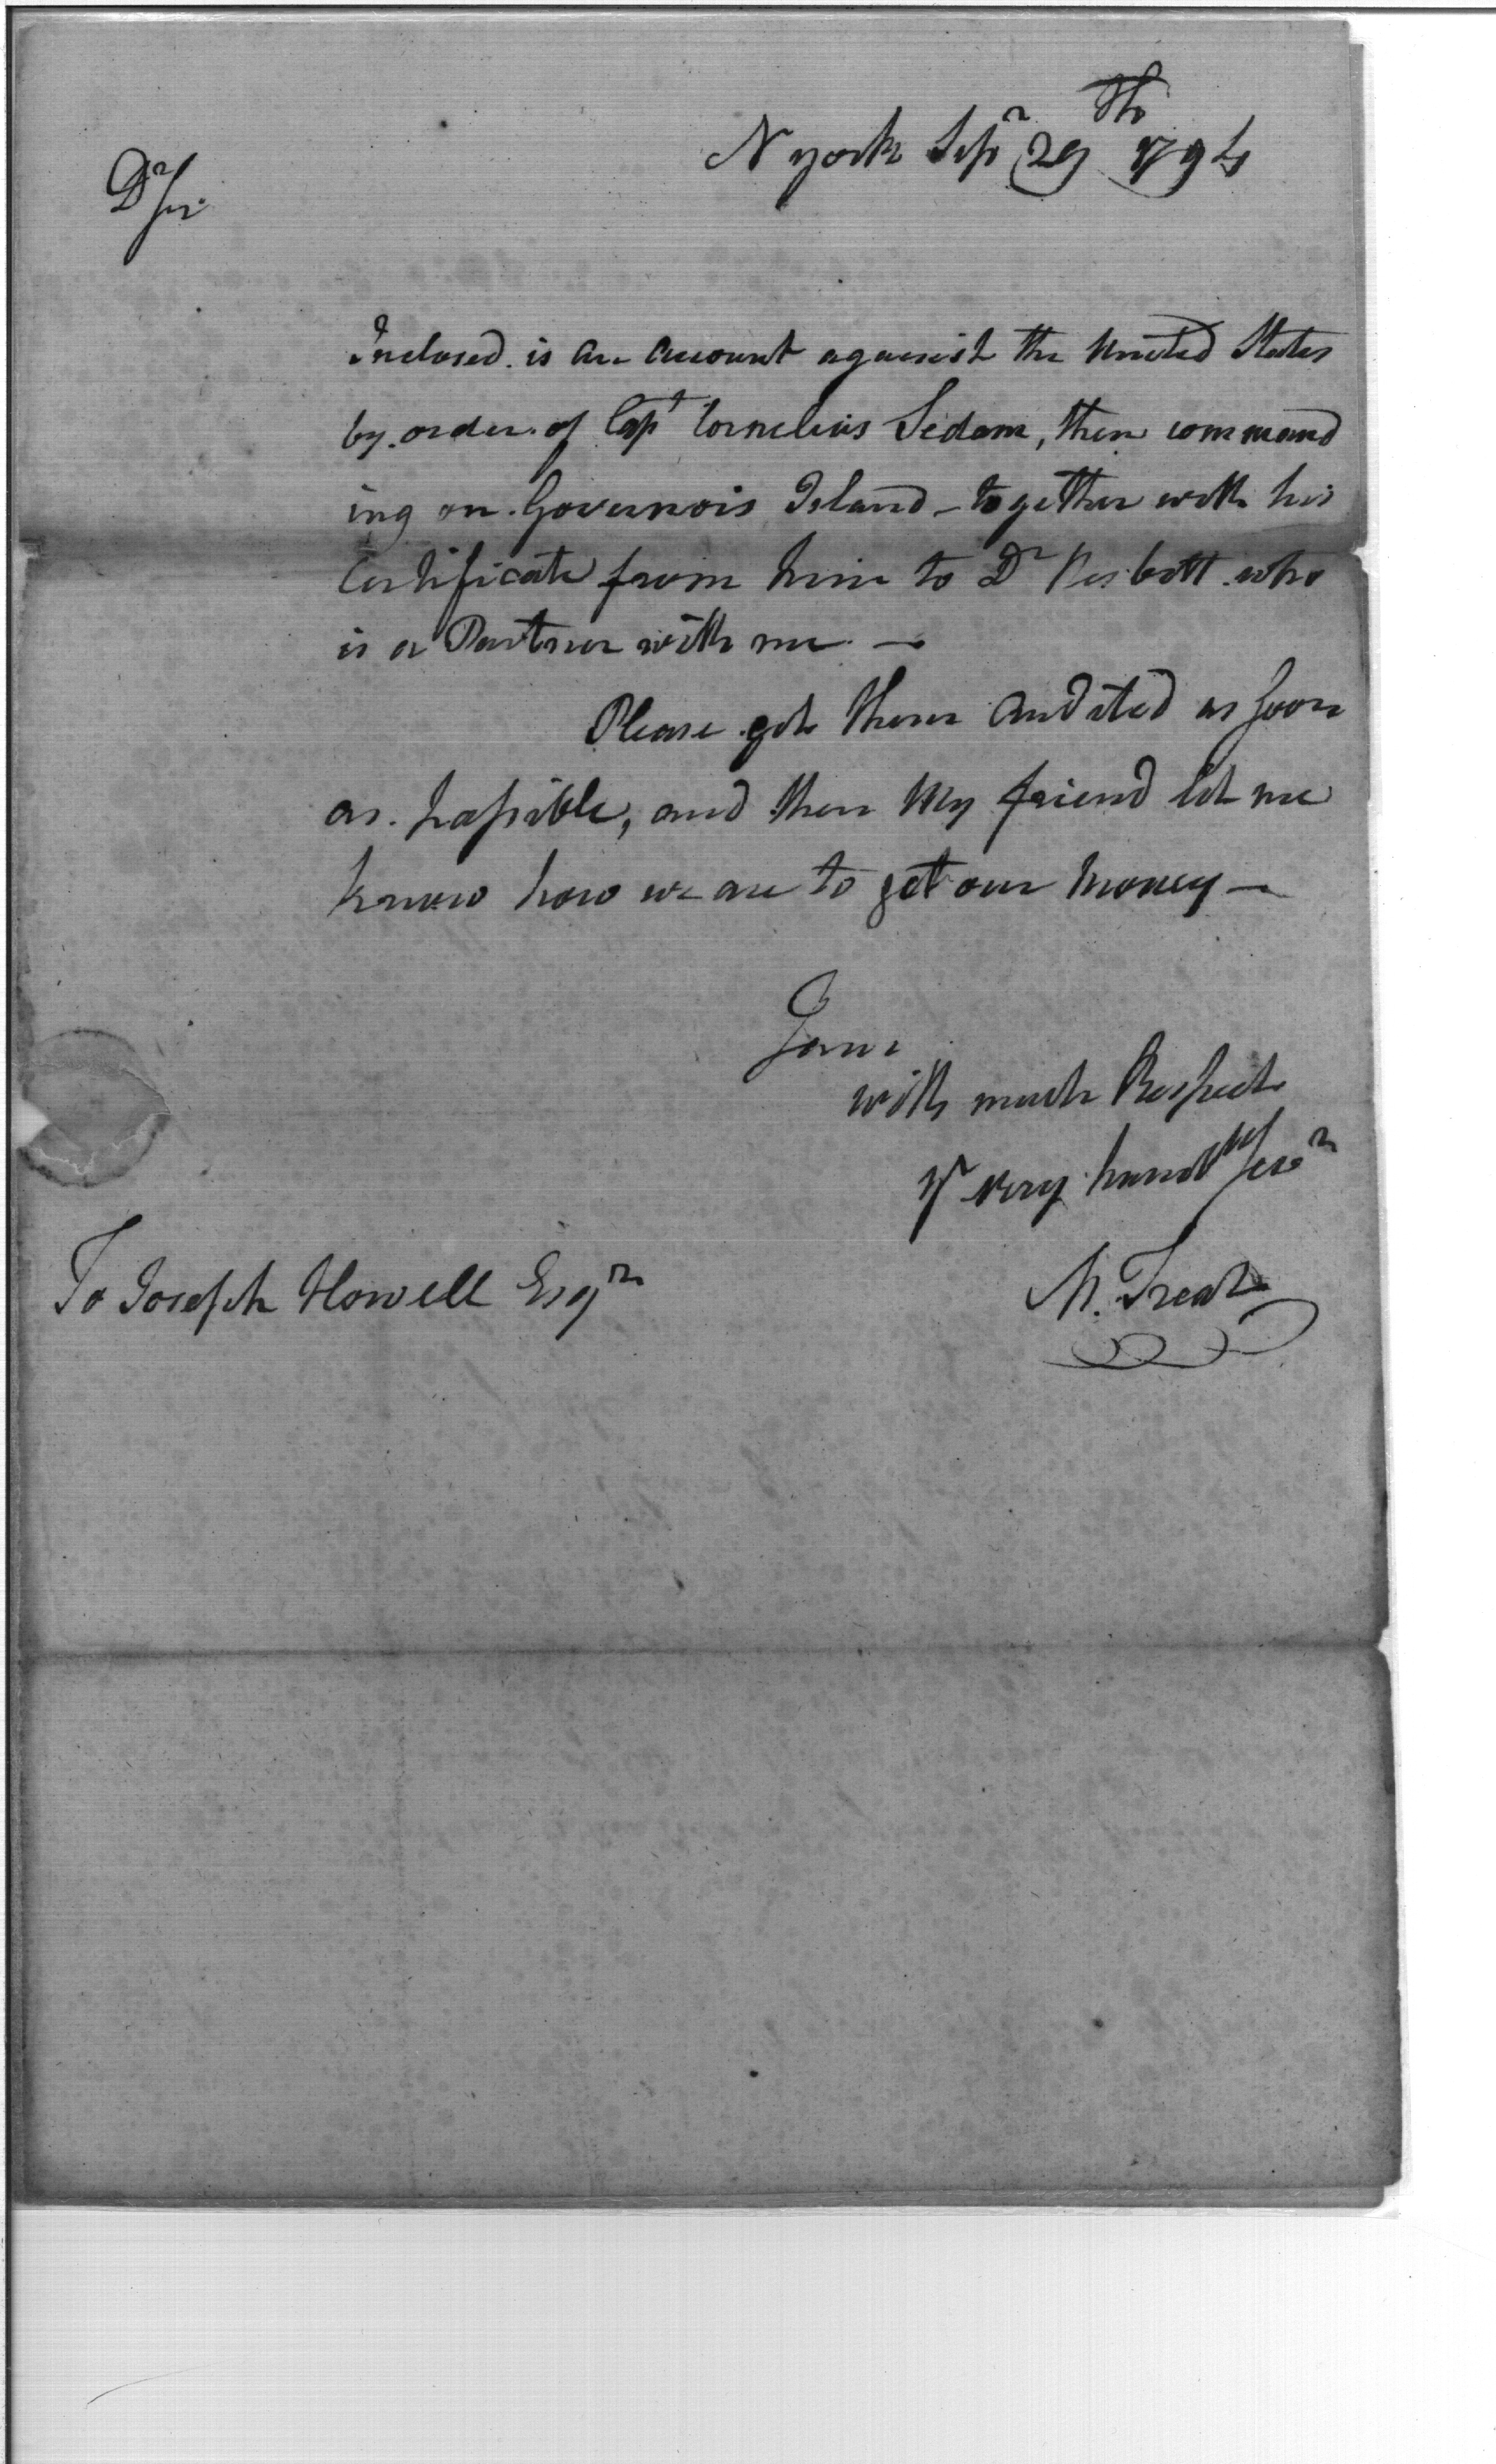 N York Sepr 29th 1794
Dr Sir
Inclosed is an account against the United States
by order of Capt Cornelius Sedam, then command
ing on Governois Island - together with his
Certificate from him to Dr Nesbott who
is a Partner with me —
Please get them Audited as soon
as possible, and then My friend let me
know how we are to get our money —
I am
with much Respect
Yr very humbl Servr
M. Treat
To Joseph Howell Esqr